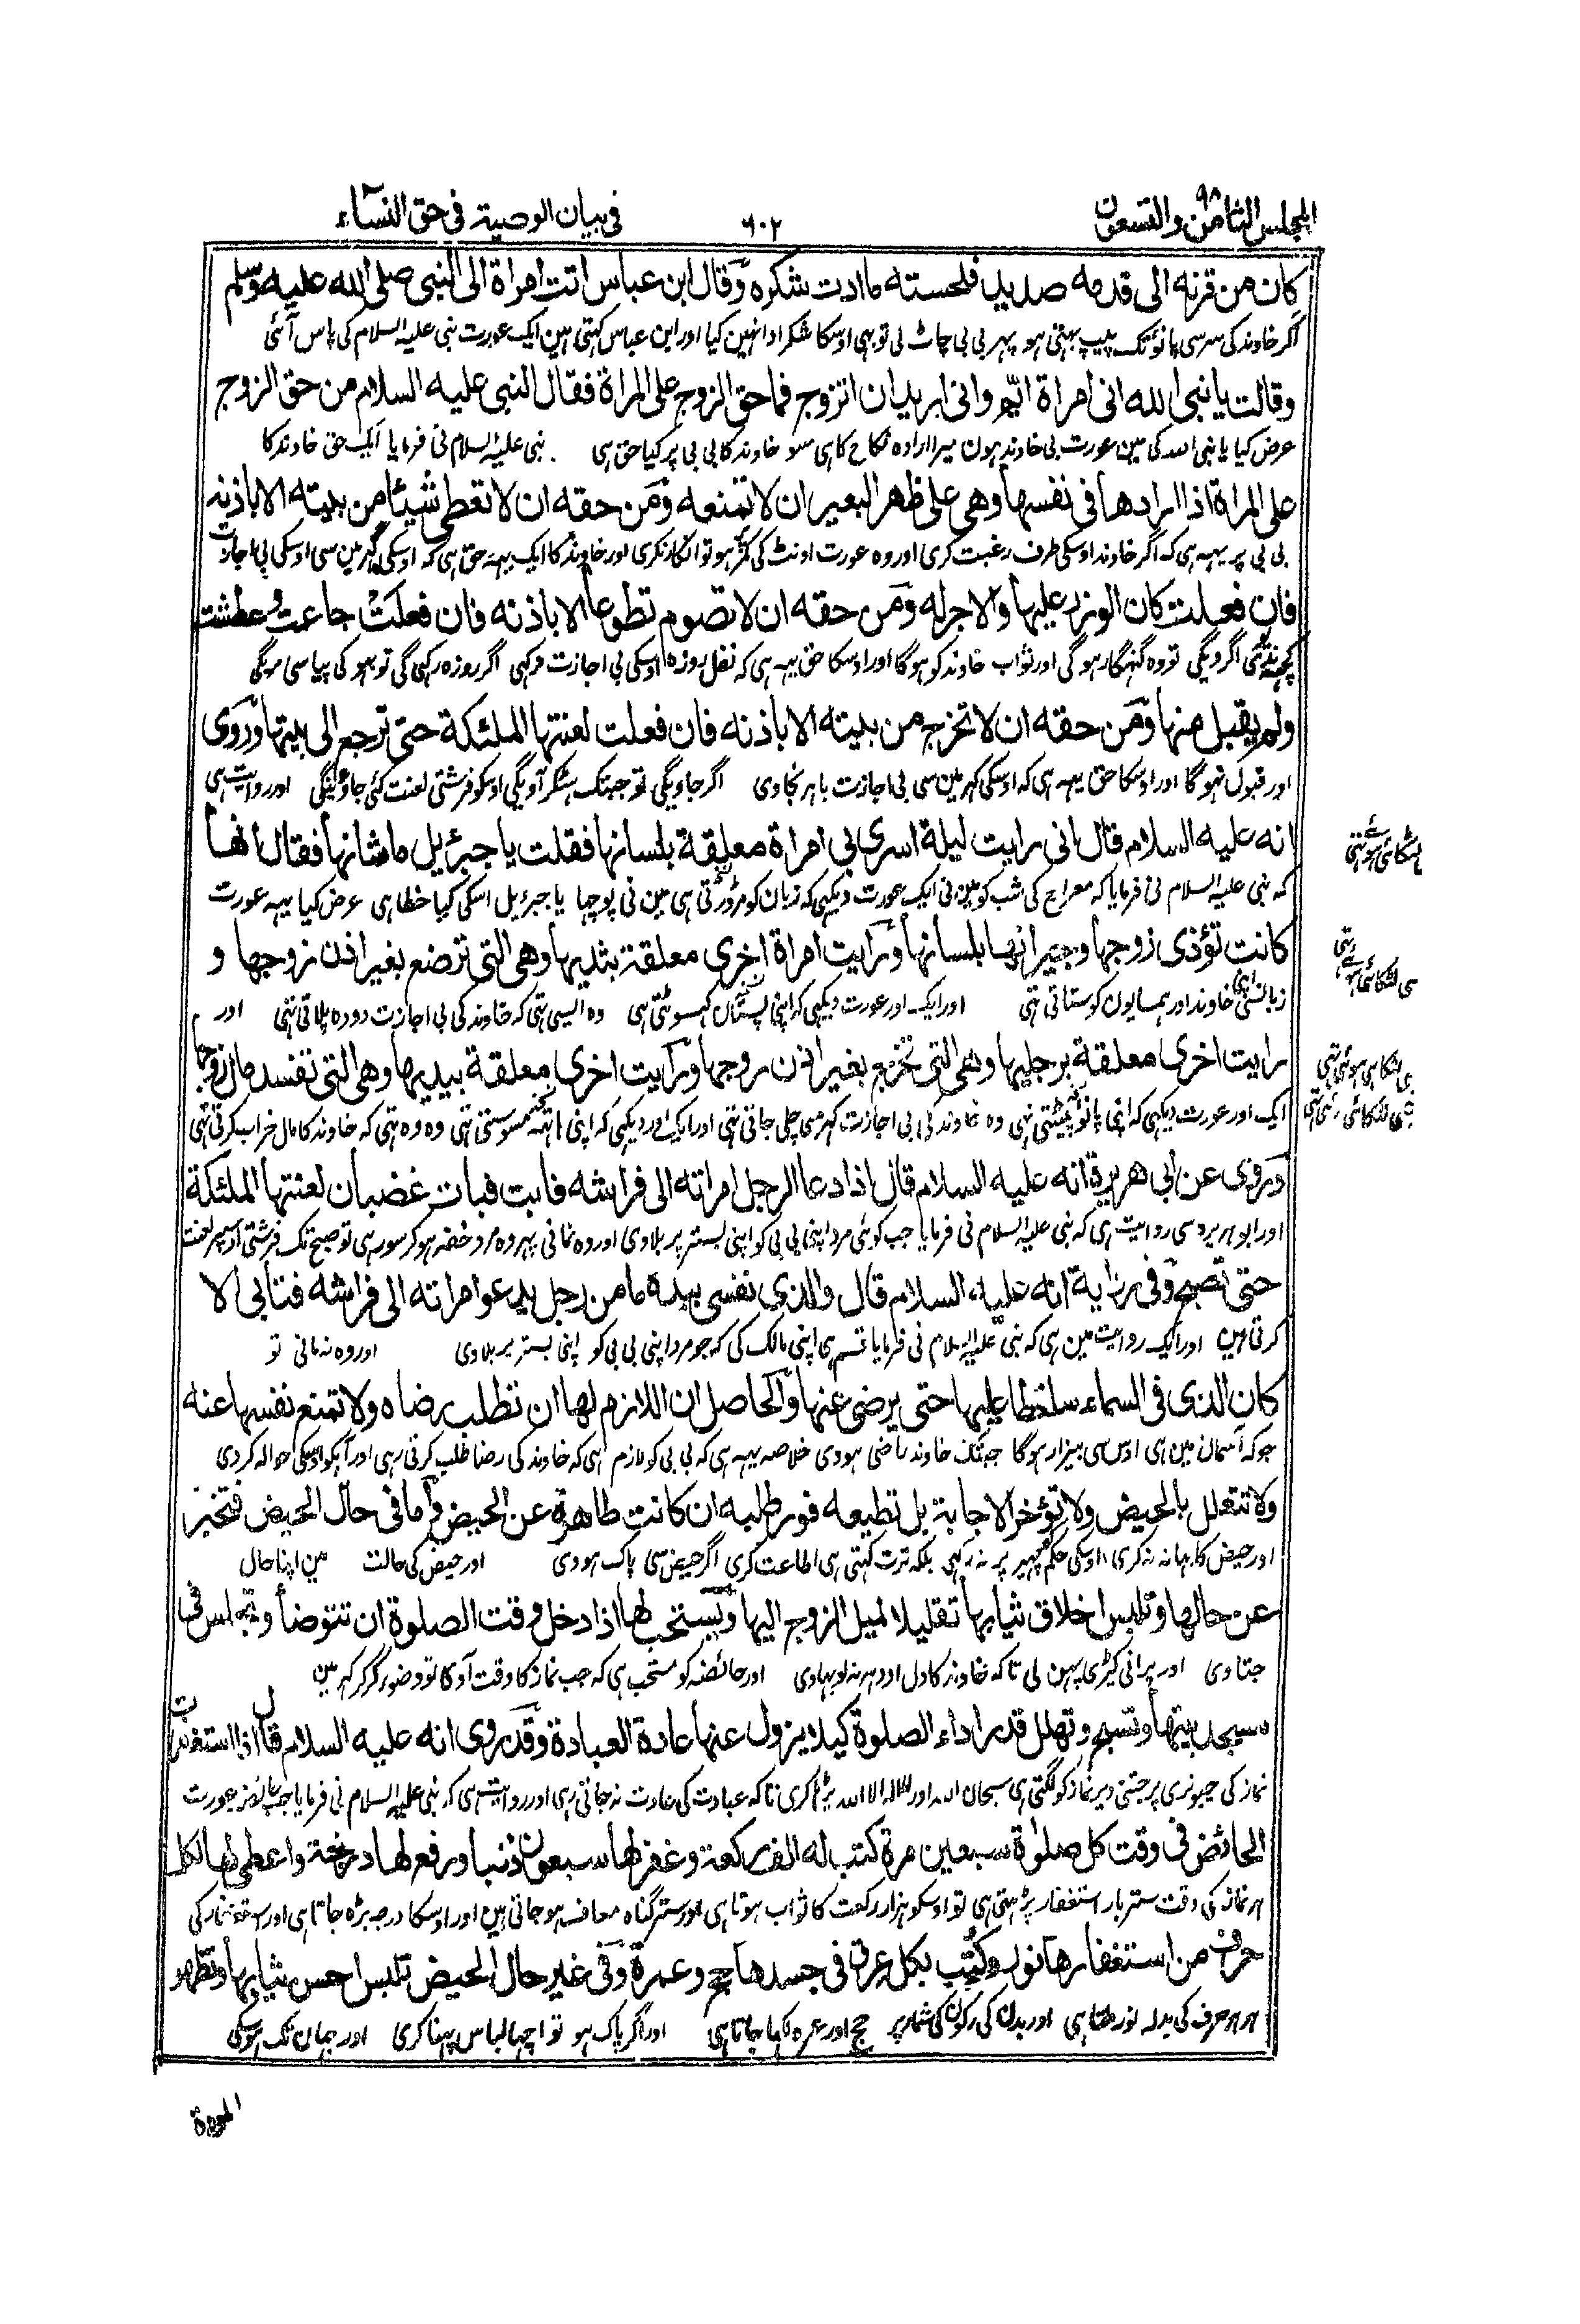 المجلس الثامن والتسعون ٩٨
٦٠٢
فی بیان الوصیة فی حق النساء
کان من قرنه الی قدمه صدید فلحسته ما ادت شکره وقال ابن عباس اتت امراة الی النبی صلی الله علیه وسلم
اگر خاوند کی سر سی پانؤ تک پیپ بہتی ہو پہر بی بی چاٹ لی تو بہی اوسکا شکر ادا نہین کیا اور ابن عباس کہتی ہین ایک عورت نبی علیہ السلام کی پاس آئی
وقالت یا نبی الله انی امراة ایّم وانی ارید ان اتزوج فما حق الزوج علی المراة فقال النبی علیه السلام من حق الزوج
عرض کیا یا نبی اللہ کی مین عورت بی خاوند ہون میرا ارادہ نکاح کا ہی سو خاوند کا بی بی پر کیا حق ہی نبی علیہ السلام نی فرمایا ایک حق خاوند کا
علی المراة اذا ارادها فی نفسها وهی علی ظهر البعیر ان لا تمنعه ومن حقه ان لا تعطی شیئا من بیته الا باذنه
بی بی پر یہہ ہی کہ اگر خاوند اوسکی طرف رغبت کری اور وہ عورت اونٹ کی کمر پر ہو تو انکار نکری اور خاوند کا ایک یہہ حق ہی کہ اوسکی گہر مین سی اوسکی بی اجازت
فان فعلت کان الوزر علیها والاجر له ومن حقه ان لا تصوم تطوعا الا باذنه فان فعلت جاعت وعطشت
کچہہ ندی اگر دیگی تو وہ گنہگار ہوگی اور ثواب خاوند کو ہوگا اور اوسکا حق یہہ ہی کہ نفل روزہ اوسکی بی اجازت نرکہی اگر روزہ رکہی گی تو بہوکی پیاسی مریگی
ولم یقبل منها ومن حقه ان لا تخرج من بیته الا باذنه فان فعلت لعنتها الملئکة حتی ترجع الی بیتها وروی
اور قبول نہوگا اور اوسکا حق یہہ ہی کہ اوسکی گہر مین سی بی اجازت باہر نجاوی اگر جاویگی تو جبتک ہٹکر آویگی اوسکو فرشتی لعنت کئی جاوینگی اور روایت ہی
انه علیه السلام قال انی رایت لیلة اسری بی امراة معلقة بلسانها فقلت یا جبرئیل ما شانها فقال انها
کہ نبی علیہ السلام نی فرمایا کہ معراج کی شب کو مین نی ایک عورت دیکہی کہ زبان کو مروڑتی ہی مین نی پوچہا یا جبرئیل اسکی کیا خطا ہی عرض کیا یہہ عورت
کانت تؤذی زوجها وجیرانها بلسانها ورایت امراة اخری معلقة بثدیها وهی التی ترضع بغیر اذن زوجها و
زبان سی اپنی خاوند اور ہمسایون کو ستاتی تہی اور ایک اور عورت دیکہی کہ اپنی پستان کہسوٹتی ہی وہ ایسی تہی کہ خاوند کی بی اجازت دودہ پلاتی تہی اور
رایت اخری معلقة برجلیها وهی التی تخرج بغیر اذن زوجها ورایت اخری معلقة بیدیها وهی التی تفسد مال زوجها
ایک اور عورت دیکہی کہ اپنی پانؤ پیٹتی تہی وہ خاوند کی بی اجازت گہر سی چلی جاتی تہی اور ایک اور دیکہی کہ اپنی ہاتہہ وہ وہ تہی کہ خاوند کا مال خراب کرتی تہی
وروی عن ابی هریرة انه علیه السلام قال اذا دعا الرجل امراته الی فراشه فابت فبات غضبان لعنتها الملئکة
اور ابو ہریرہ سی روایت ہی کہ نبی علیہ السلام نی فرمایا جب کوئی مرد اپنی بی بی کو اپنی بستر پر بلاوی اور وہ نمانی پہر وہ مرد خفہ ہوکر سو رہی تو صبح تک فرشتی اوسپر لعنت
حتی تصبح وفی روایة انه علیه السلام قال والذی نفسی بیده ما من رجل یدعو امراته الی فراشه فتابی الا
کرتی ہین اور ایک روایت مین ہی کہ نبی علیہ السلام نی فرمایا قسم ہی اپنی مالک کی کہ جو مرد اپنی بی بی کو اپنی بستر پر بلاوی اور وہ نہ مانی تو
کان الذی فی السماء ساخطا علیها حتی یرضی عنها والحاصل ان اللازم لها ان تطلب رضاه ولا تمنع نفسها عنه
جو کہ آسمان مین ہی اوس سی بیزار ہوگا جبتک خاوند راضی ہووی خلاصہ یہہ ہی کہ بی بی کو لازم ہی کہ خاوند کی رضا طلب کرتی رہی اور آپکو اوسکی حوالہ کردی
ولا تتعلل بالحیض ولا تؤخر الاجابة بل تطیعه فور طلبه ان کانت طاهرة عن الحیض واما فی حال الحیض فتخبر
اور حیض کا بہانہ نہ کری اوسکی حکم پر نہ رکہی بلکہ ترت کہتی ہی اطاعت کری اگر حیض سی پاک ہووی اور حیض کی حالت مین اپنا حال
عن حالها وتلبس اخلاق ثیابها تقلیلا لمیل الزوج الیها ویستحب لها اذا دخل وقت الصلوة ان تتوضأ وتجلس فی
جتاوی اور پرانی کپڑی پہن لی تا کہ خاوند کا دل اودہر نہ لوبہاوی اور حائضہ کو مستحب ہی کہ جب نماز کا وقت آوی تو وضو کر کر گہر مین
مسجد بیتها وتسبح وتهلل قدر اداء الصلوة کیلا یزول عنها عادة العبادة وقد روی انه علیه السلام قال اذا استغفرت
نماز کی چبوتری پر جتنی دیر نماز کو لگتی ہی سبحان اللہ اور لا الہ الا اللہ پڑہا کری تا کہ عبادت کی عادت نہ جاتی رہی اور روایت ہی کہ نبی علیہ السلام نی فرمایا جب حائضہ عورت
الحائض فی وقت کل صلوة سبعین مرة کتب له الف رکعة وغفر لها سبعون ذنبا ورفع لها درجة واعطی لها لکل
ہر نماز کی وقت ستر بار استغفار پڑہتی ہی تو اوسکو ہزار رکعت کا ثواب ہوتا ہی اور ستر گناہ معاف ہوجاتی ہین اور اوسکا درجہ بڑہ جاتا ہی اور استغفار کی
حرف من استغفارها نور وکتب بکل عرق فی جسدها حج وعمرة وفی غیر حال الحیض تلبس احسن ثیابها وتطهر
ہر ہر حرف کی بدلہ نور ملتا ہی اور بدن کی رگون کی شمار پر حج اور عمرہ لکہا جاتا ہی اور اگر پاک ہو تو اچہا لباس پہنا کری اور جہان تک ہوسکی